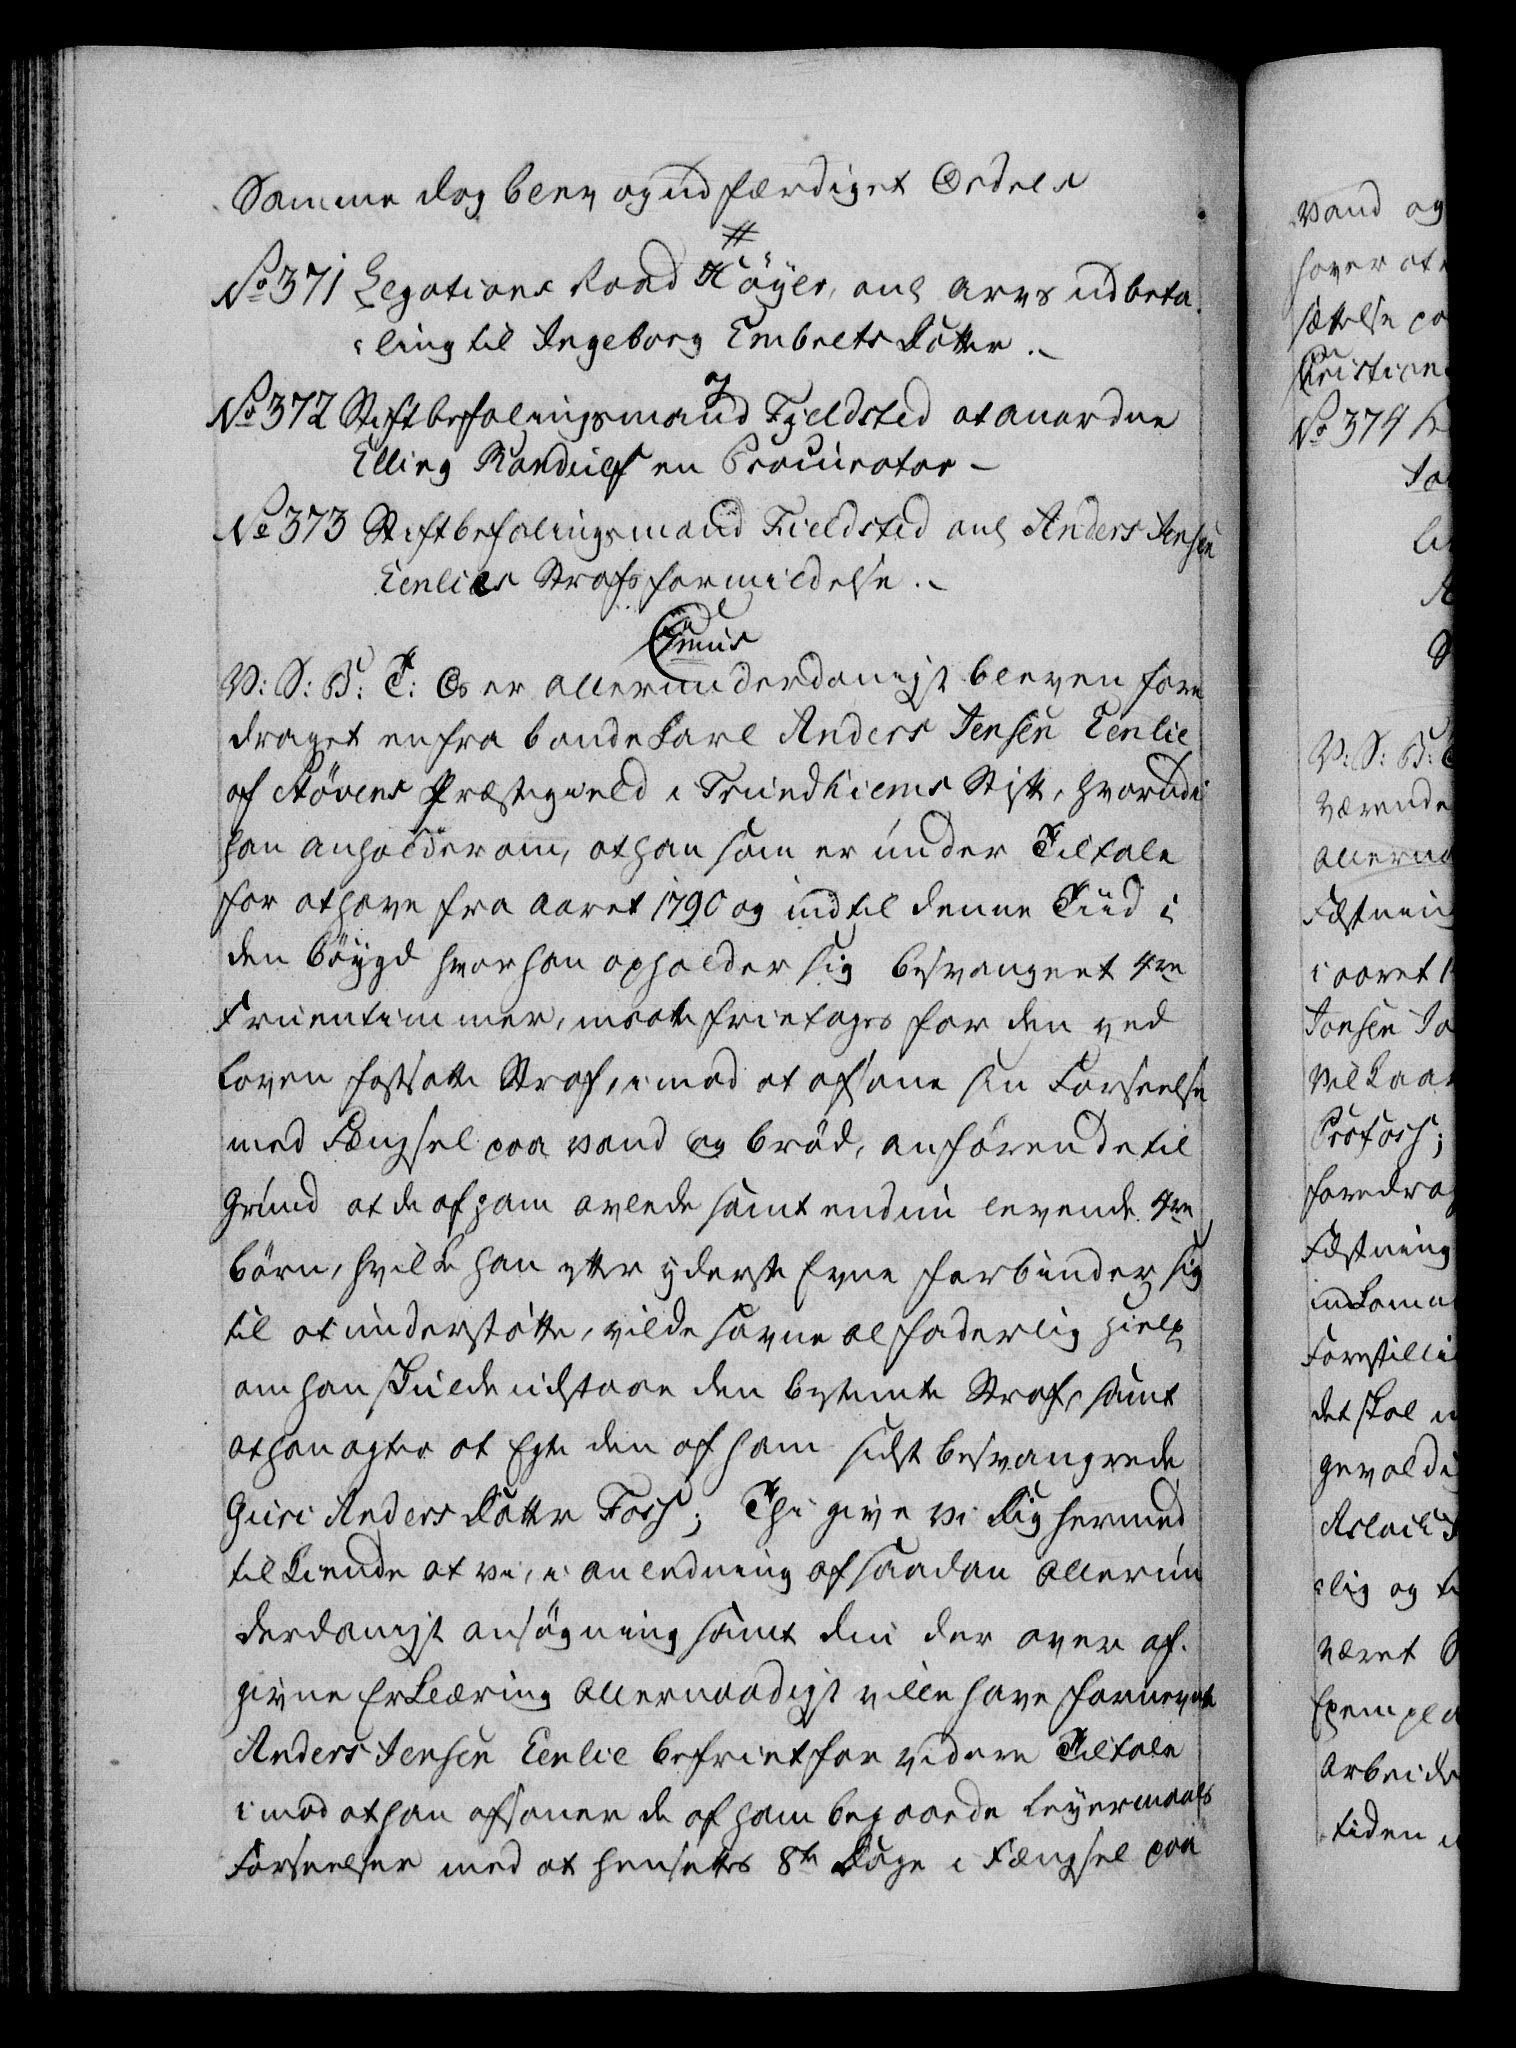 Samme dag blev og udfærdiget Ordres
#
No 371 Legations Raad Høyer, anl Arvs udbeta
ling til Ingeborg Embrets Datter.
og
No 372 Stiftbefalingsmand Fjeldsted at anordne
Elling Randulf en Procurator
No 373 Stiftbefalingsmand Fieldsted anl Anders Jensen
Eenlies Strafs formildelse.
C: 7mus
V: S: G: T: Os er allerunderdanigst bleven fore
draget en fra bondekarl Anders Jensen Eenlie
af Støvens Præstegield i Trundhiems Stift, hvorudi
han anholder om, at han som er under Tiltale
for at have fra Aaret 1790 og indtil denne Tiid i
den bøygd hvor han opholder sig besvangret 4re
Fruentimmer, maatte fritages for den ved
Loven fastsatte Straf, imod at afsone sin Forseelse
med Fængsel paa vand og brød, anførende til
Grund at de af ham avlede samt endnu levende 4re
børn, hvilke han efter yderste Evne forbinder sig
til at understøtte, vilde savne al faderlig hielp
om han skulde udstaae den bestemte Straf, samt
at han agter at Egte den af ham sidst besvangrede
Guri Anders Datter Foss; Thi give vi Dig hermed
tilkiende at vi, i anledning af saadan allerun
derdanigst ansøgning samt din der over af
givne Erklæring allernaadigst ville have fornevnte
Anders Jensen Eenlie befriet for videre Tiltale
imod at han afsoner de af ham begaaede Leyermaals
Forseelser med at hensættes 8te Dage i Fængsel paa
vand og
haver at
sættelse pa
Christian
No 374
V: S: G:
værende
Allerund
Fæstning
i aaret 1
Jonsen Jo
vilkaar
Profoss;
foredrag
Fæstning
indkomm
Forestilli
det skal
gevaldi
Aslach
lig og
været
Exempla
Arbeide
tiden